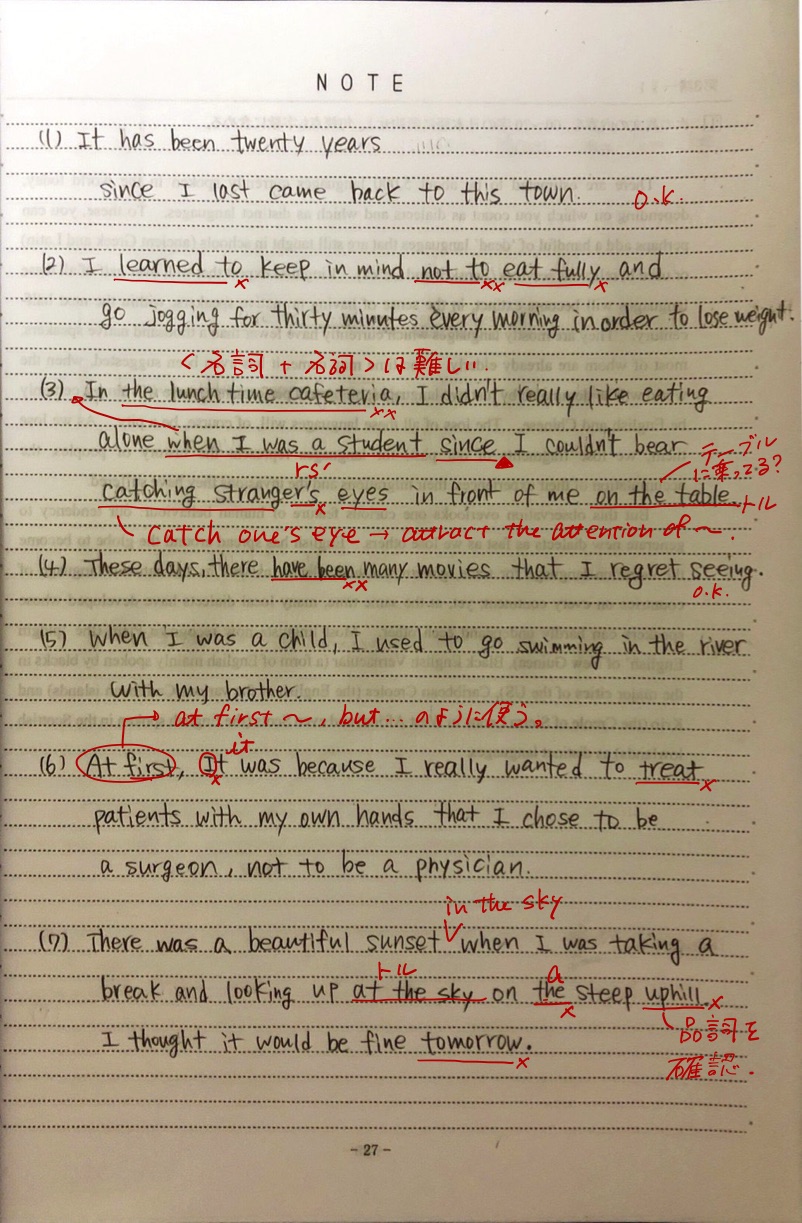 NOTE
(1) It has been twenty years
since I last came back to this town. O.K.
(2) I learned to keep in mind not to eat fully and
× ×× ×
go jogging for thirty minutes every morning in order to lose weight.
<名詞 + 名詞>は難しい.
(3) In the lunch time cafeteria, I didn't really like eating
××
alone when I was a student since I couldn't bear テーブルに乗ってる?
rs'
catching stranger's eyes in front of me on the table. トル
×
catch one's eye → attract the attention of ~.
(4) These days, there have been many movies that I regret seeing.
×× O.K.
(5) When I was a child, I used to go swimming in the river
with my brother.
→ at first ~, but … のように使う。
it
(6) At first, It was because I really wanted to treat
× ×
patients with my own hands that I chose to be
a surgeon, not to be a physician.
in the sky
(7) There was a beautiful sunset when I was taking a
トル a
break and looking up at the sky on the steep uphill. ×
× 品詞を
I thought it would be fine tomorrow. 確認.
×
- 27 -